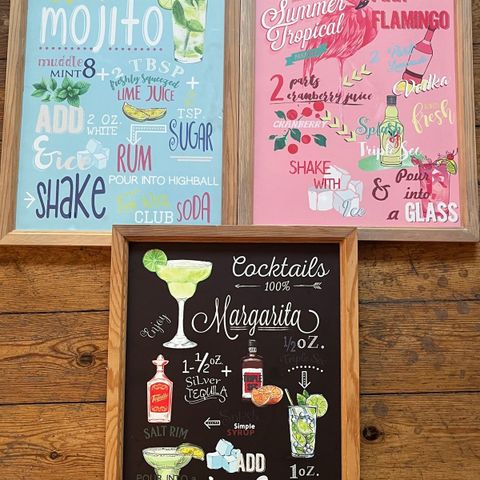 mojito
muddle
MINT 8 + 2 TBSP
freshly squeezed
LIME JUICE
+
ADD 2 OZ.
WHITE
RUM
2
TSP.
SUGAR
& ice
Shake
POUR INTO HIGHBALL
CLUB SODA
Summer
Tropical
FLAMINGO
2 parts
cranberry juice
CRANBERRY
2 Parts
Lemonade
Vodka
AND
fresh
Splash
Triple Sec
SHAKE
WITH
Ice
& Pour
into
a GLASS
Cocktails
100%
Margarita
Enjoy
1-1/2 OZ.
Silver
TEQUILA
+
1/2 OZ.
Triple Sec
TRIPLE
SEC
Tequila
SALT RIM
Splash
Simple
SYRUP
POUR INTO a
ADD
1 OZ.